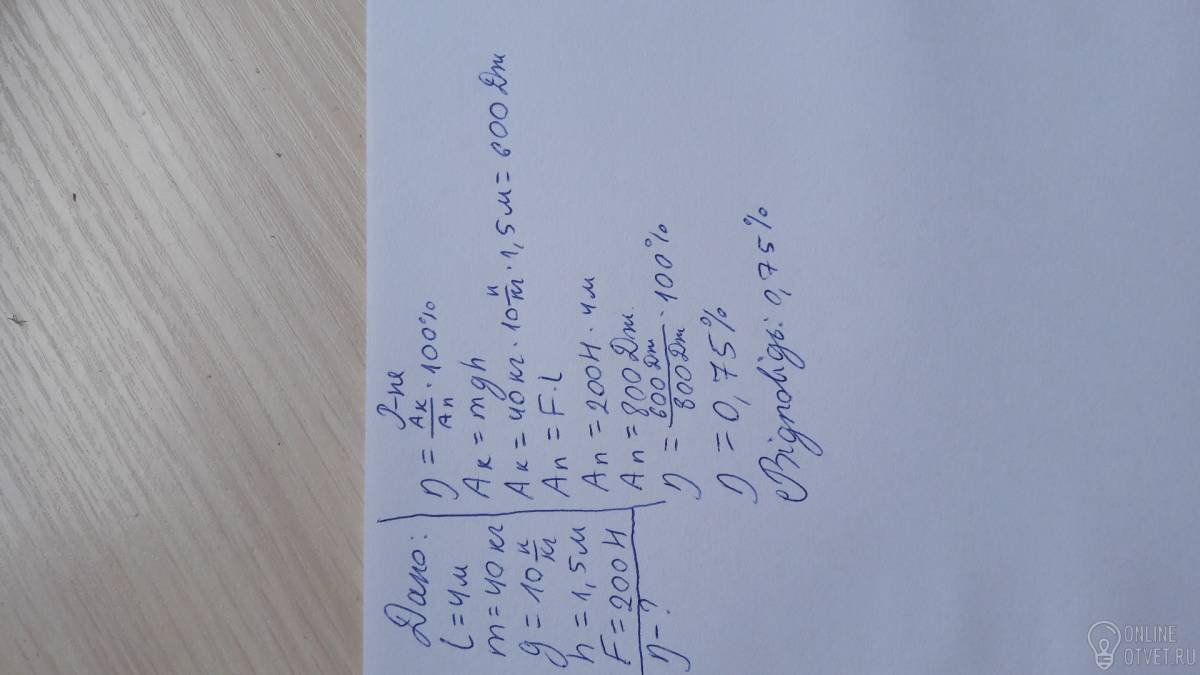 Дано:
l = 4м
m = 40 кг
g = 10 н/кг
h = 1,5 м
F = 200 Н
η - ?
Р-ня
η = Aк/Aп · 100%
Aк = mgh
Aк = 40 кг · 10 н/кг · 1,5 м = 600 Дж
Aп = F · l
Aп = 200Н · 4м
Aп = 800 Дж
η = 600 Дж/800 Дж · 100%
η = 0,75%
Відповідь: 0,75%
ONLINE
OTVET.RU